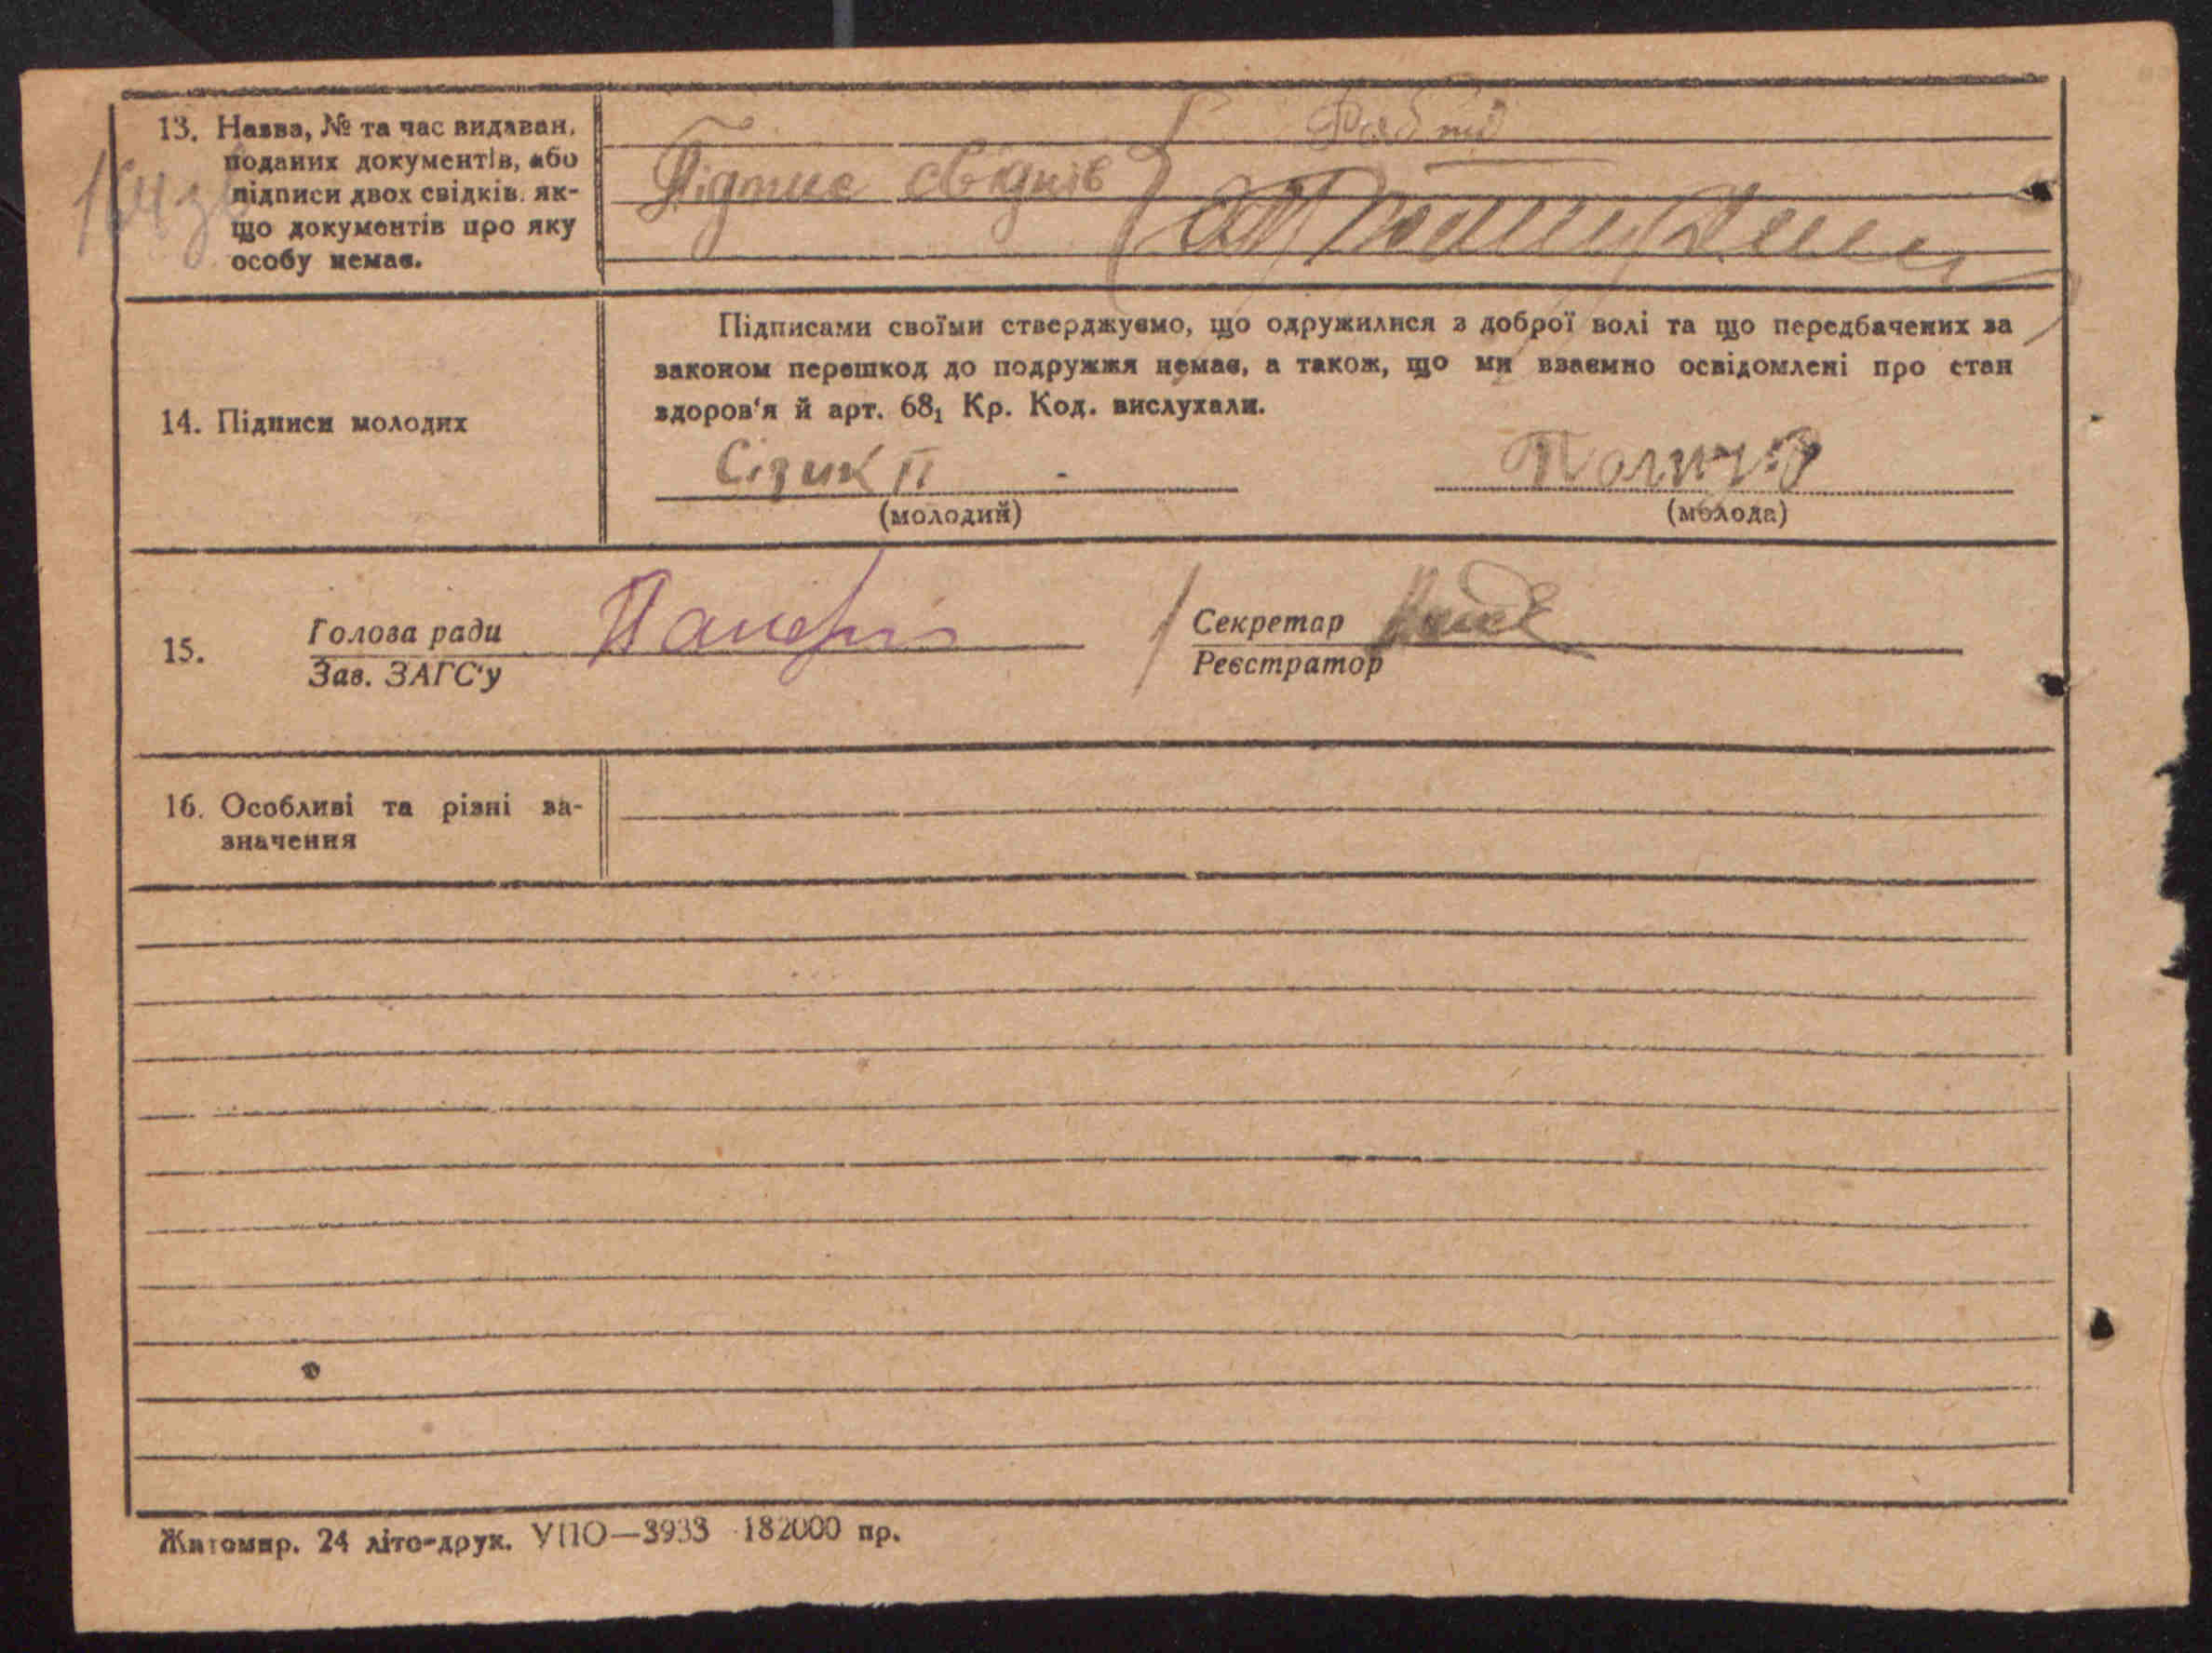 13. Назва, № та час видаван.
поданих документів, або
підписи двох свідків. як-
що документів про яку
особу немає.
Підпис свідків
Підписами своїми стверджуємо, що одружилися з доброї волі та що передбачених за
законом перешкод до подружжя немає, а також, що ми взаємно освідомлені про стан
здоров'я й арт. 68₁ Кр. Код. вислухали.
14. Підписи молодих
Сізик П
(молодий)
(молода)
15.
Голова ради
Зав. ЗАГС'у
Секретар
Реєстратор
16. Особливі та різні за-
значення
Житомир. 24 літо-друк. УПО—3933 182000 пр.